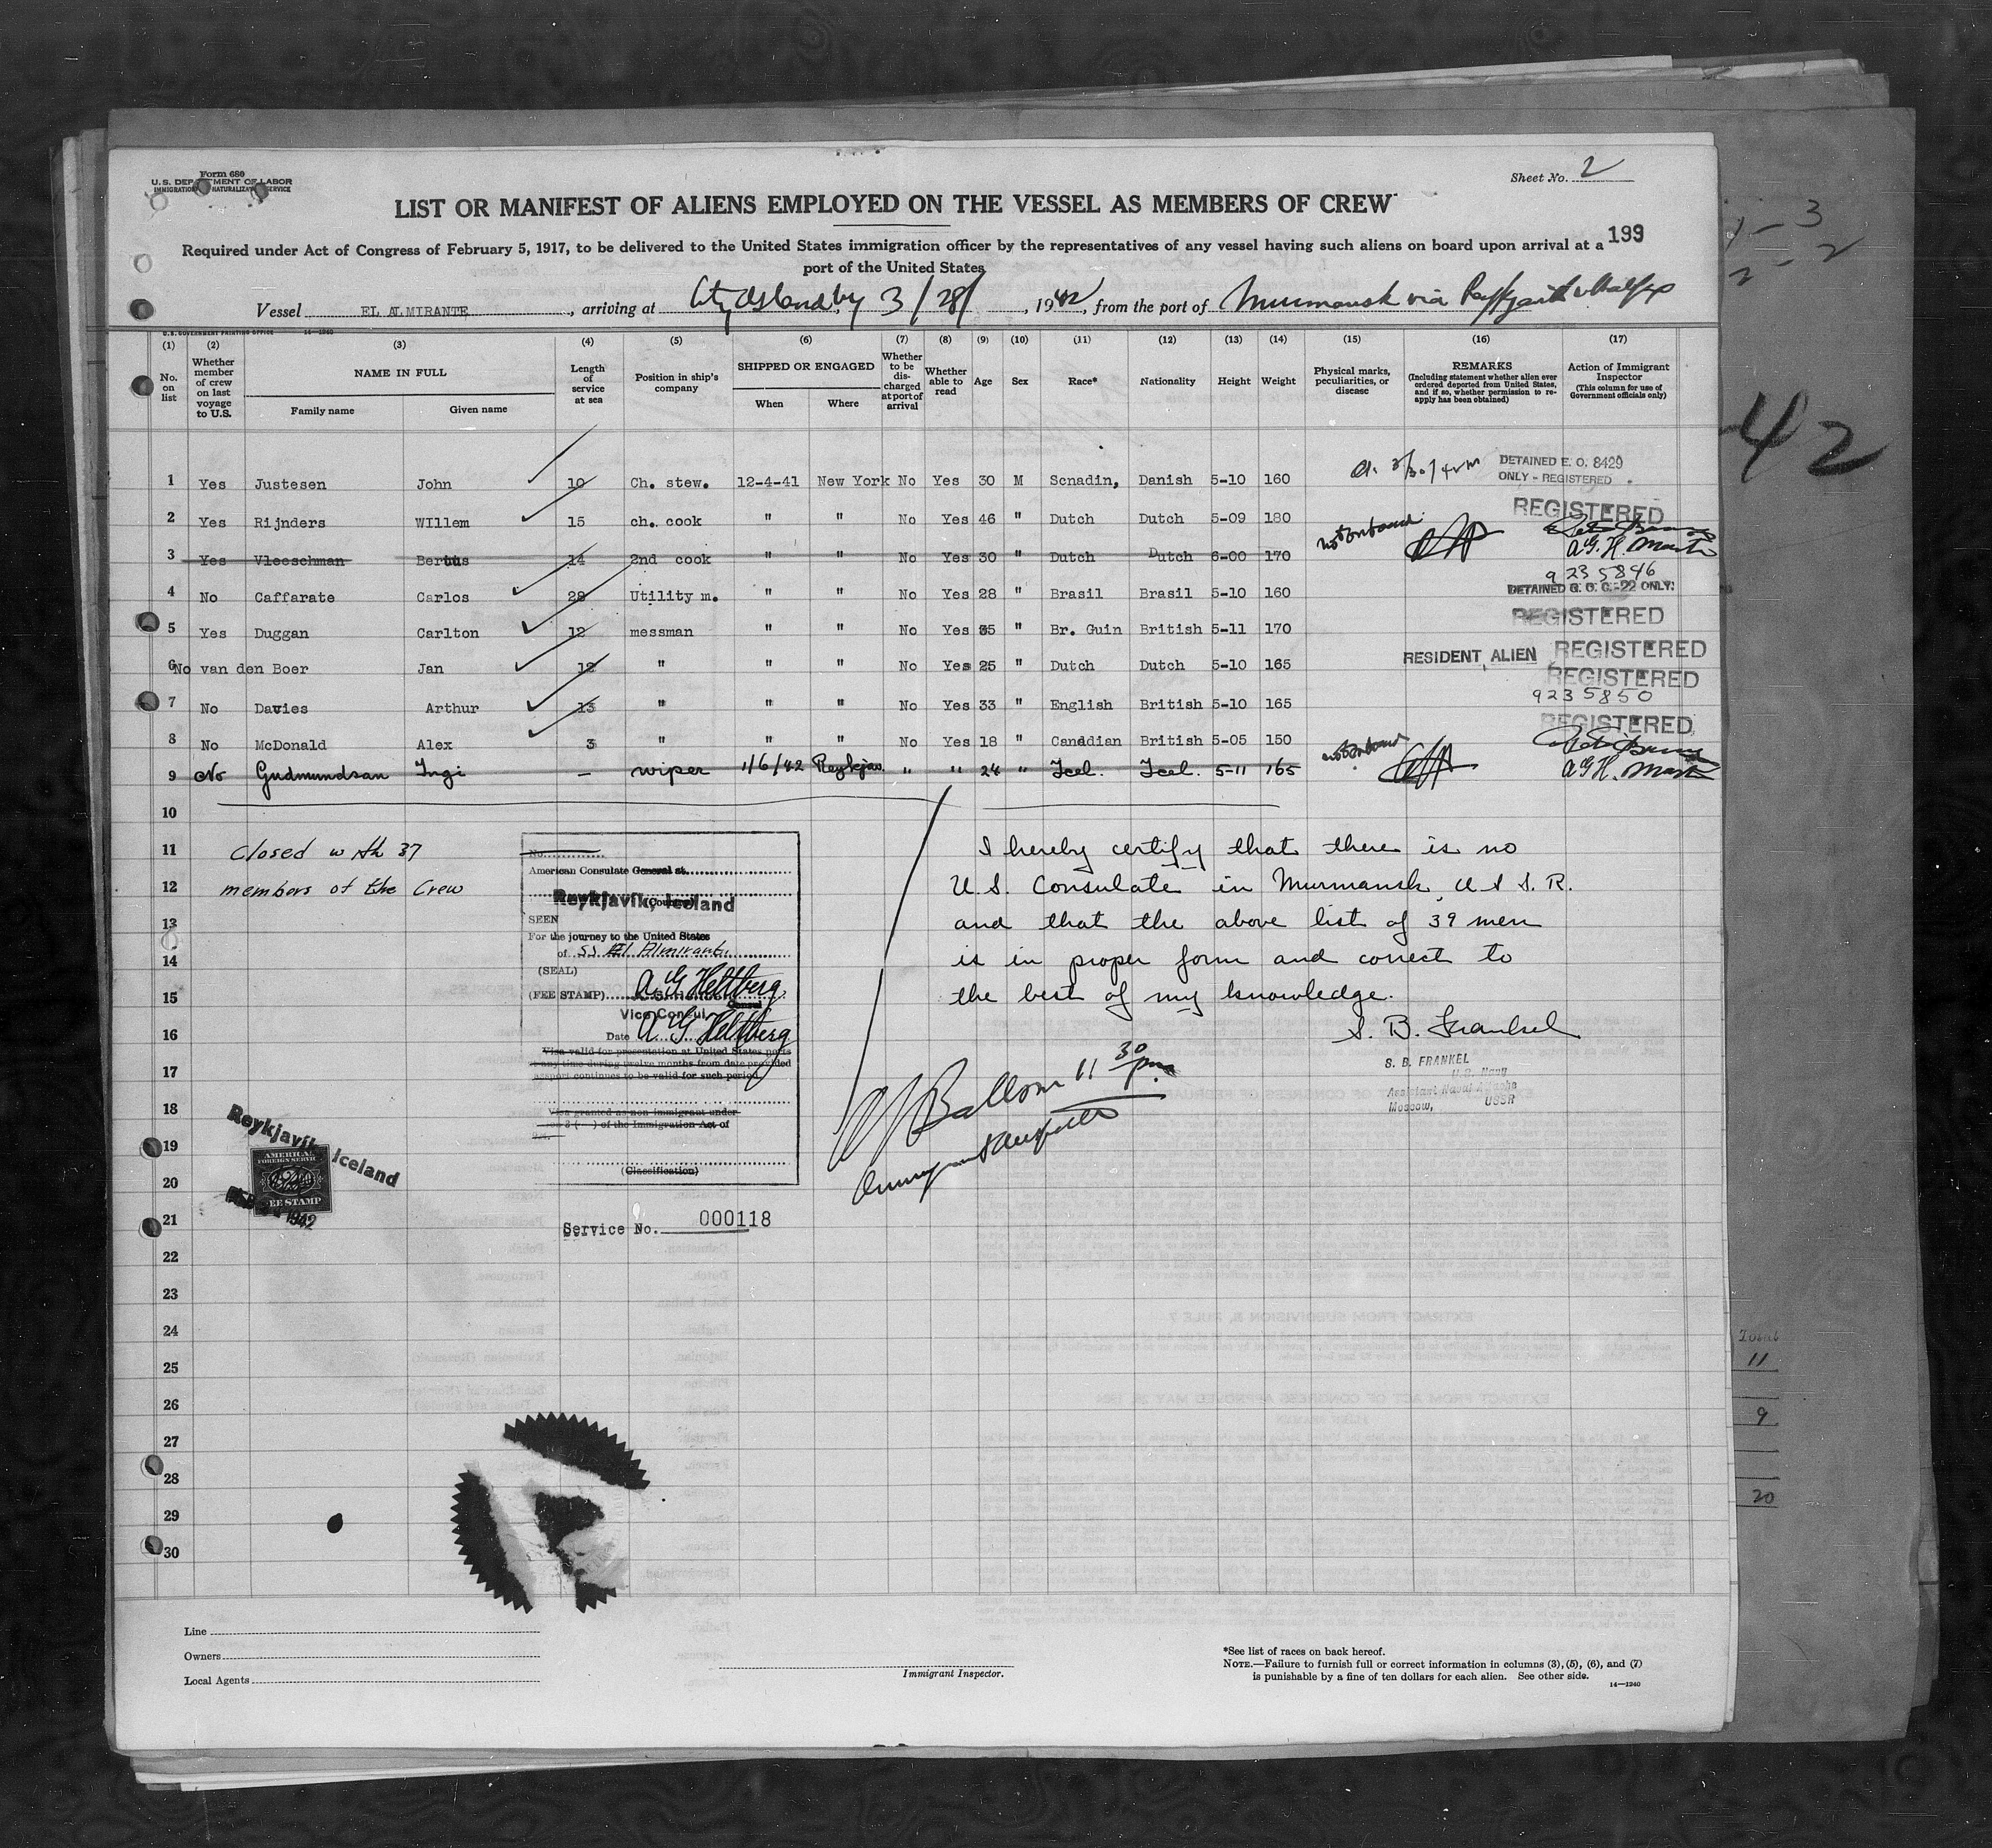 Form 680
U. S. DEPARTMENT OF LABOR
IMMIGRATION NATURALIZATION SERVICE
Sheet No. 2
LIST OR MANIFEST OF ALIENS EMPLOYED ON THE VESSEL AS MEMBERS OF CREW
Required under Act of Congress of February 5, 1917, to be delivered to the United States immigration officer by the representatives of any vessel having such aliens on board upon arrival at a
199
port of the United States
Vessel EL ALMIRANTE, arriving at City Island by 3/28/, 1942, from the port of Murmansk via Halifax
U. S. GOVERNMENT PRINTING OFFICE 14—1240
(1) (2) (3) (4) (5) (6) (7) (8) (9) (10) (11) (12) (13) (14) (15) (16) (17)
No. on list
Whether member of crew on last voyage to U.S.
NAME IN FULL
Family name Given name
Length of service at sea
Position in ship's company
SHIPPED OR ENGAGED
When Where
Whether to be discharged at port of arrival
Whether able to read
Age
Sex
Race*
Nationality
Height
Weight
Physical marks, peculiarities, or disease
REMARKS
(Including statement whether alien ever ordered deported from United States, and if so, whether permission to reapply has been obtained)
Action of Immigrant Inspector
(This column for use of Government officials only)
1 Yes Justesen John 10 Ch. stew. 12-4-41 New York No Yes 30 M Scnadin, Danish 5-10 160 3/30/42 DETAINED E. O. 8429
ONLY - REGISTERED
2 Yes Rijnders WIllem 15 ch. cook " " No Yes 46 " Dutch Dutch 5-09 180 REGISTERED
3 Yes Vleeschman Bertus 14 2nd cook " " No Yes 30 " Dutch Dutch 6-00 170 not on board
9235846
4 No Caffarate Carlos 28 Utility m. " " No Yes 28 " Brasil Brasil 5-10 160 DETAINED G. O. C-22 ONLY.
REGISTERED
5 Yes Duggan Carlton 12 messman " " No Yes 35 " Br. Guin British 5-11 170
6 No van den Boer Jan 12 " " " No Yes 25 " Dutch Dutch 5-10 165 RESIDENT ALIEN REGISTERED
REGISTERED
7 No Davies Arthur 13 " " " No Yes 33 " English British 5-10 165 9235850
REGISTERED
8 No McDonald Alex 3 " " " No Yes 18 " Canadian British 5-05 150
9 No Gudmundsan Ingi — wiper 1/6/42 Reykjav. " " 24 " Icel. Icel. 5-11 165 not on board
10
11
12
13
14
15
16
17
18
19
20
21
22
23
24
25
26
27
28
29
30
Closed with 37
members of the Crew
No.
American Consulate General at
Reykjavik, Iceland
(Country)
SEEN
For the journey to the United States
of SS El Almirante
(SEAL)
(FEE STAMP)
A G Heltberg
Consul
Vice Consul
Date
A G Heltberg
Visa valid for presentation at United States ports
at any time during twelve months from date provided
passport continues to be valid for such period
Visa granted as non-immigrant under
of the Immigration Act of
(Classification)
Service No. 000118
I hereby certify that there is no
U.S. Consulate in Murmansk, U S S. R.
and that the above list of 39 men
is in proper form and correct to
the best of my knowledge.
S. B. Frankel
S. B. FRANKEL
U.S. Navy
Assistant Naval Attache
Moscow, USSR
11 30 pm
Reykjavik, Iceland
AMERICAN
FOREIGN SERVICE
FEE STAMP
1942
Line
Owners
Local Agents
Immigrant Inspector.
*See list of races on back hereof.
NOTE.—Failure to furnish full or correct information in columns (3), (5), (6), and (7)
is punishable by a fine of ten dollars for each alien. See other side.
14—1240
42
Total
11
9
20